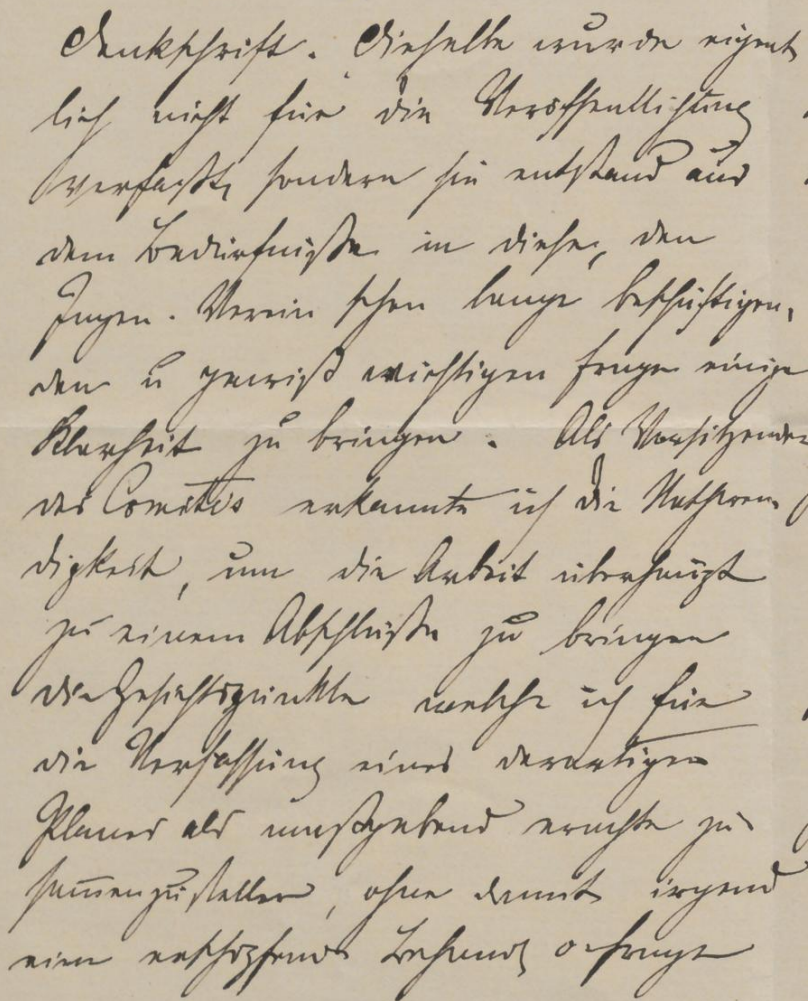 Denkschrift. Dieselbe wurde eigent
lich nicht für die Veröffentlichung
verfaßt, sondern sie entstand aus
dem Bedürfniße in diese, den
Ingen. Verein schon lange beschäftigen,
den u gewiß wichtigen Frage einige
Klarheit zu bringen. Als Vorsitzender
des Comités erkannte ich die Nothwen
digkeit, um die Arbeit überhaupt
zu einem Abschluße zu bringen
die Gesichtspunkte welche ich für
die Verfassung eines derartigen
Planes als maßgebend erachte zu
sammenzustellen, ohne damit irgend
eine erschöpfende